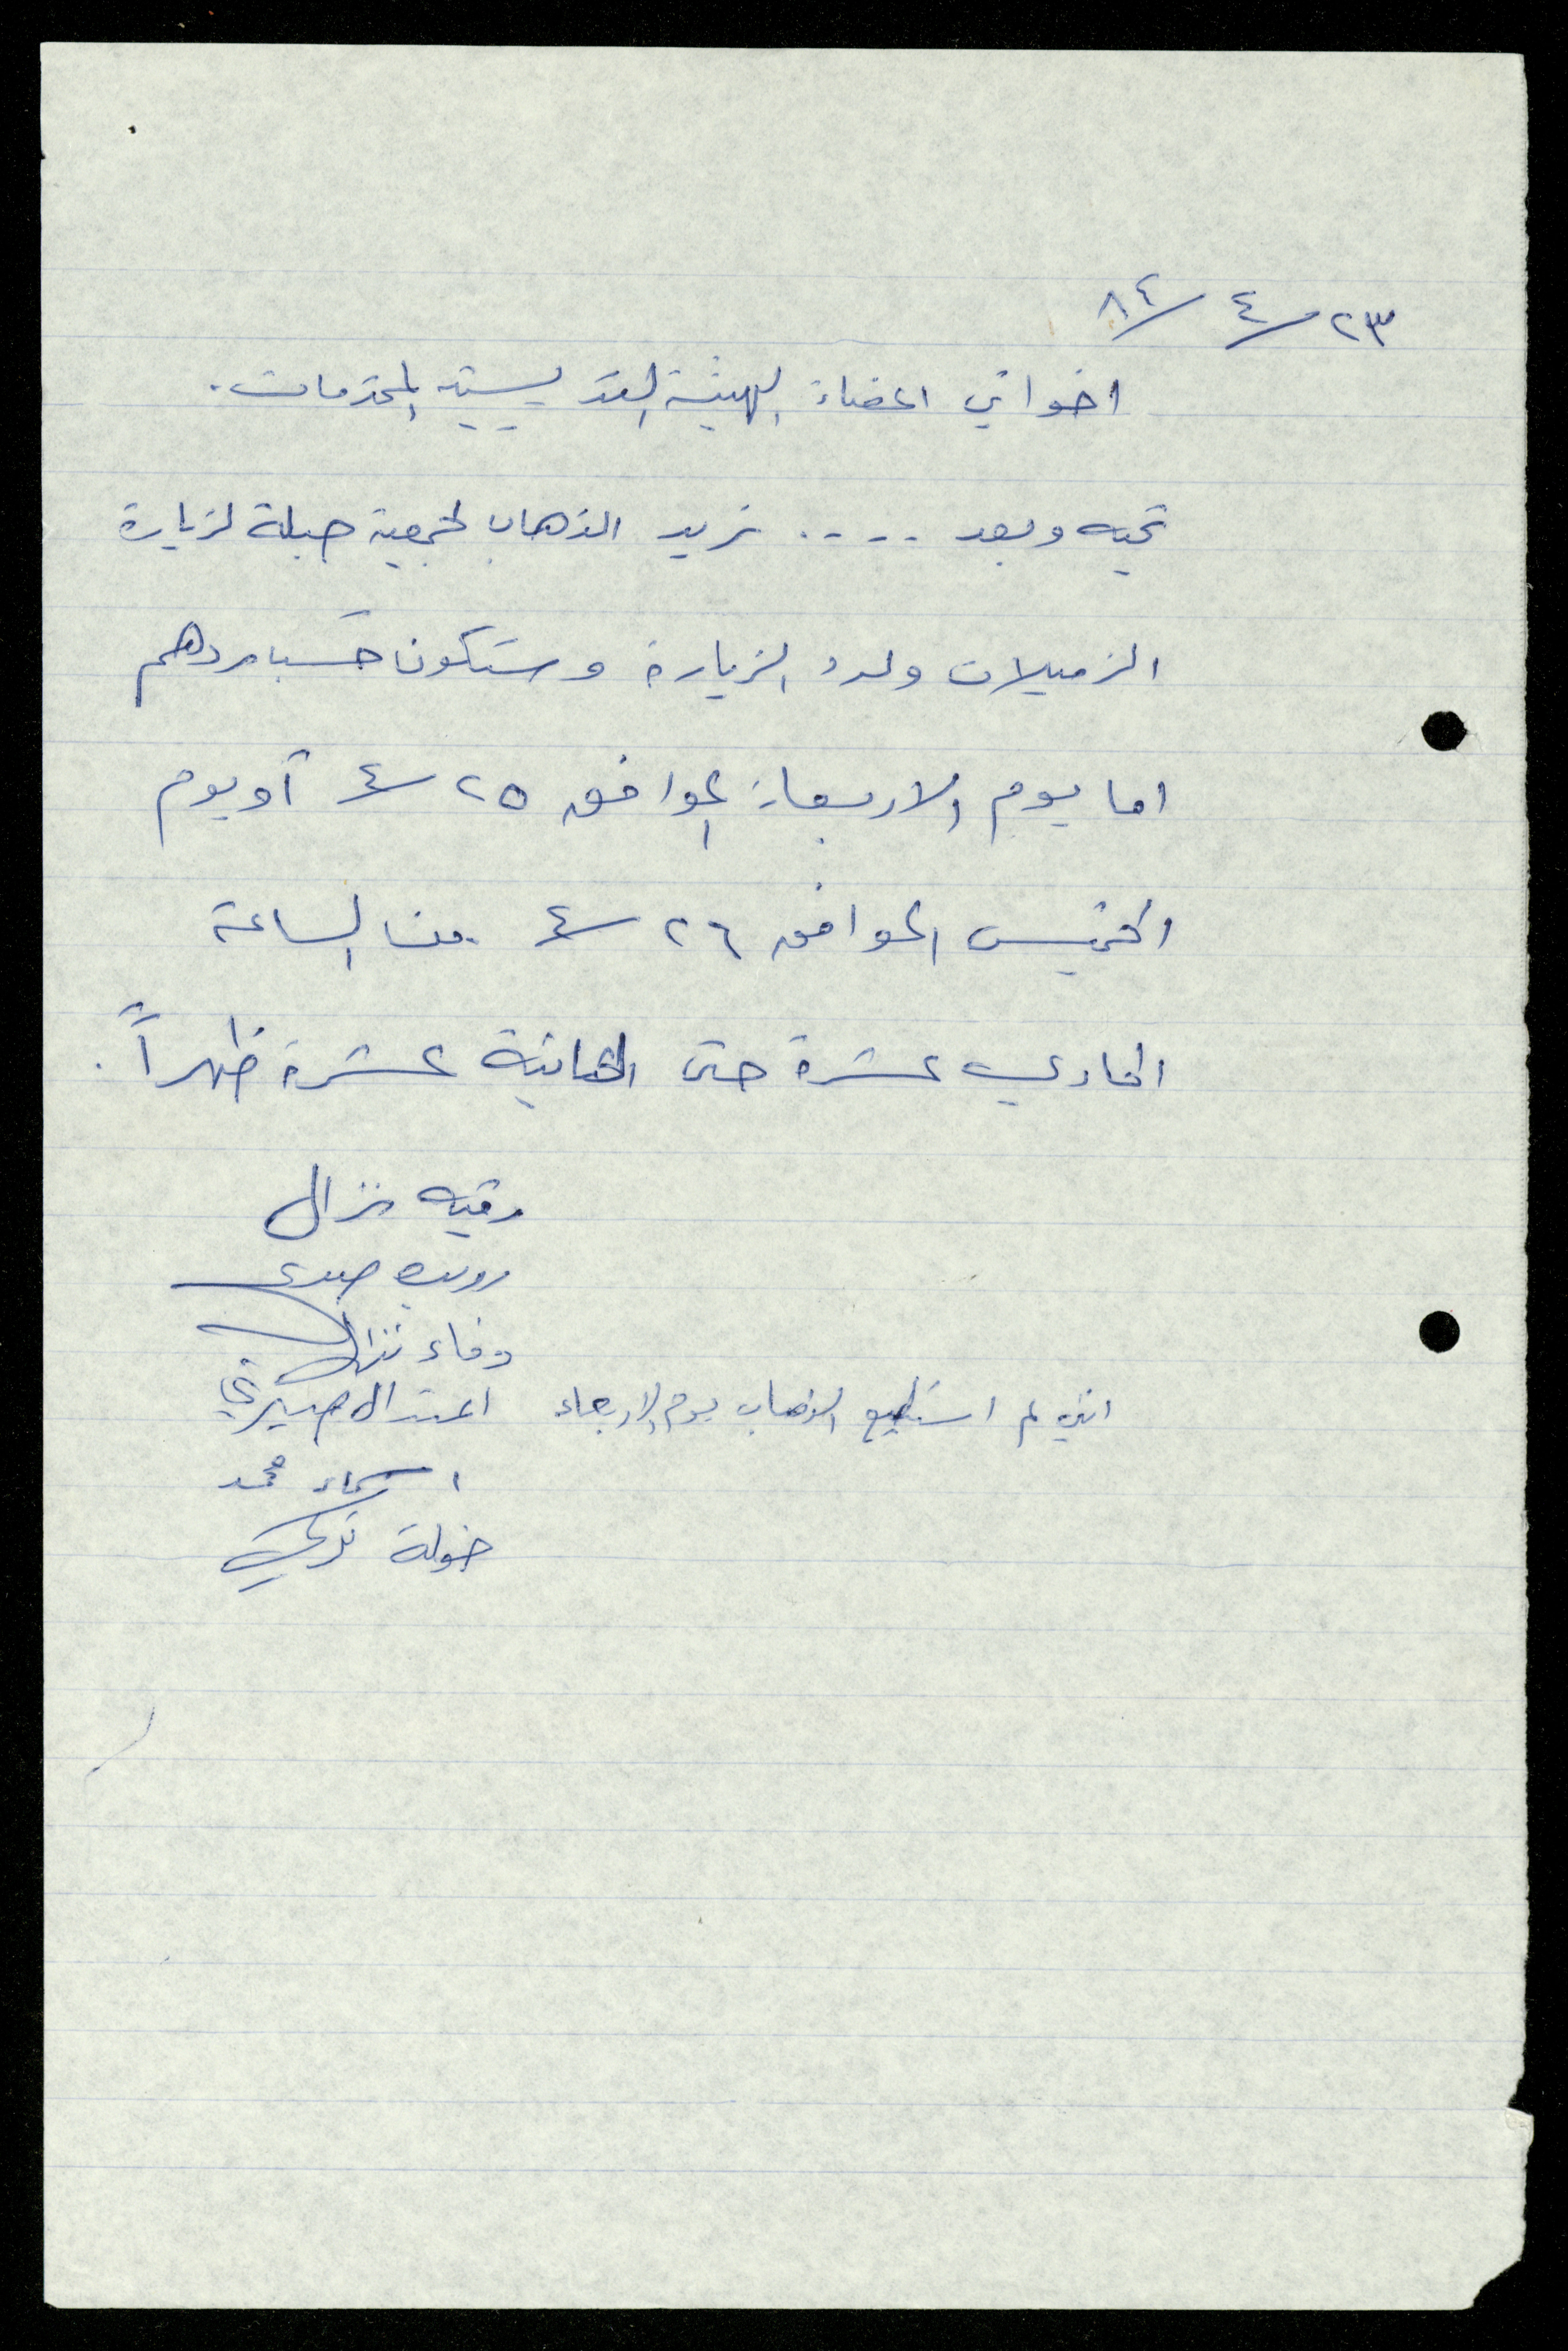 ٢٣/٤/٨٤
اخواتي اعضاء الهيئة التدريسيه المحترمات.
تحيه وبعد .... نريد الذهاب لجمعية جبلة لزيارة
الزميلات ولرد الزيارة وستكون حسب ردهم
اما يوم الاربعاء الموافق ٢٥/٤ أو يوم
الخميس الموافق ٢٦/٤ من الساعة
الحادي عشرة حتى الثانية عشرة ظهراً.
رقيه نزال
رويده
وفاء نزال
انني لم استطيع الذهاب يوم الاربعاء اعتدال
اسماء محمد
خولة